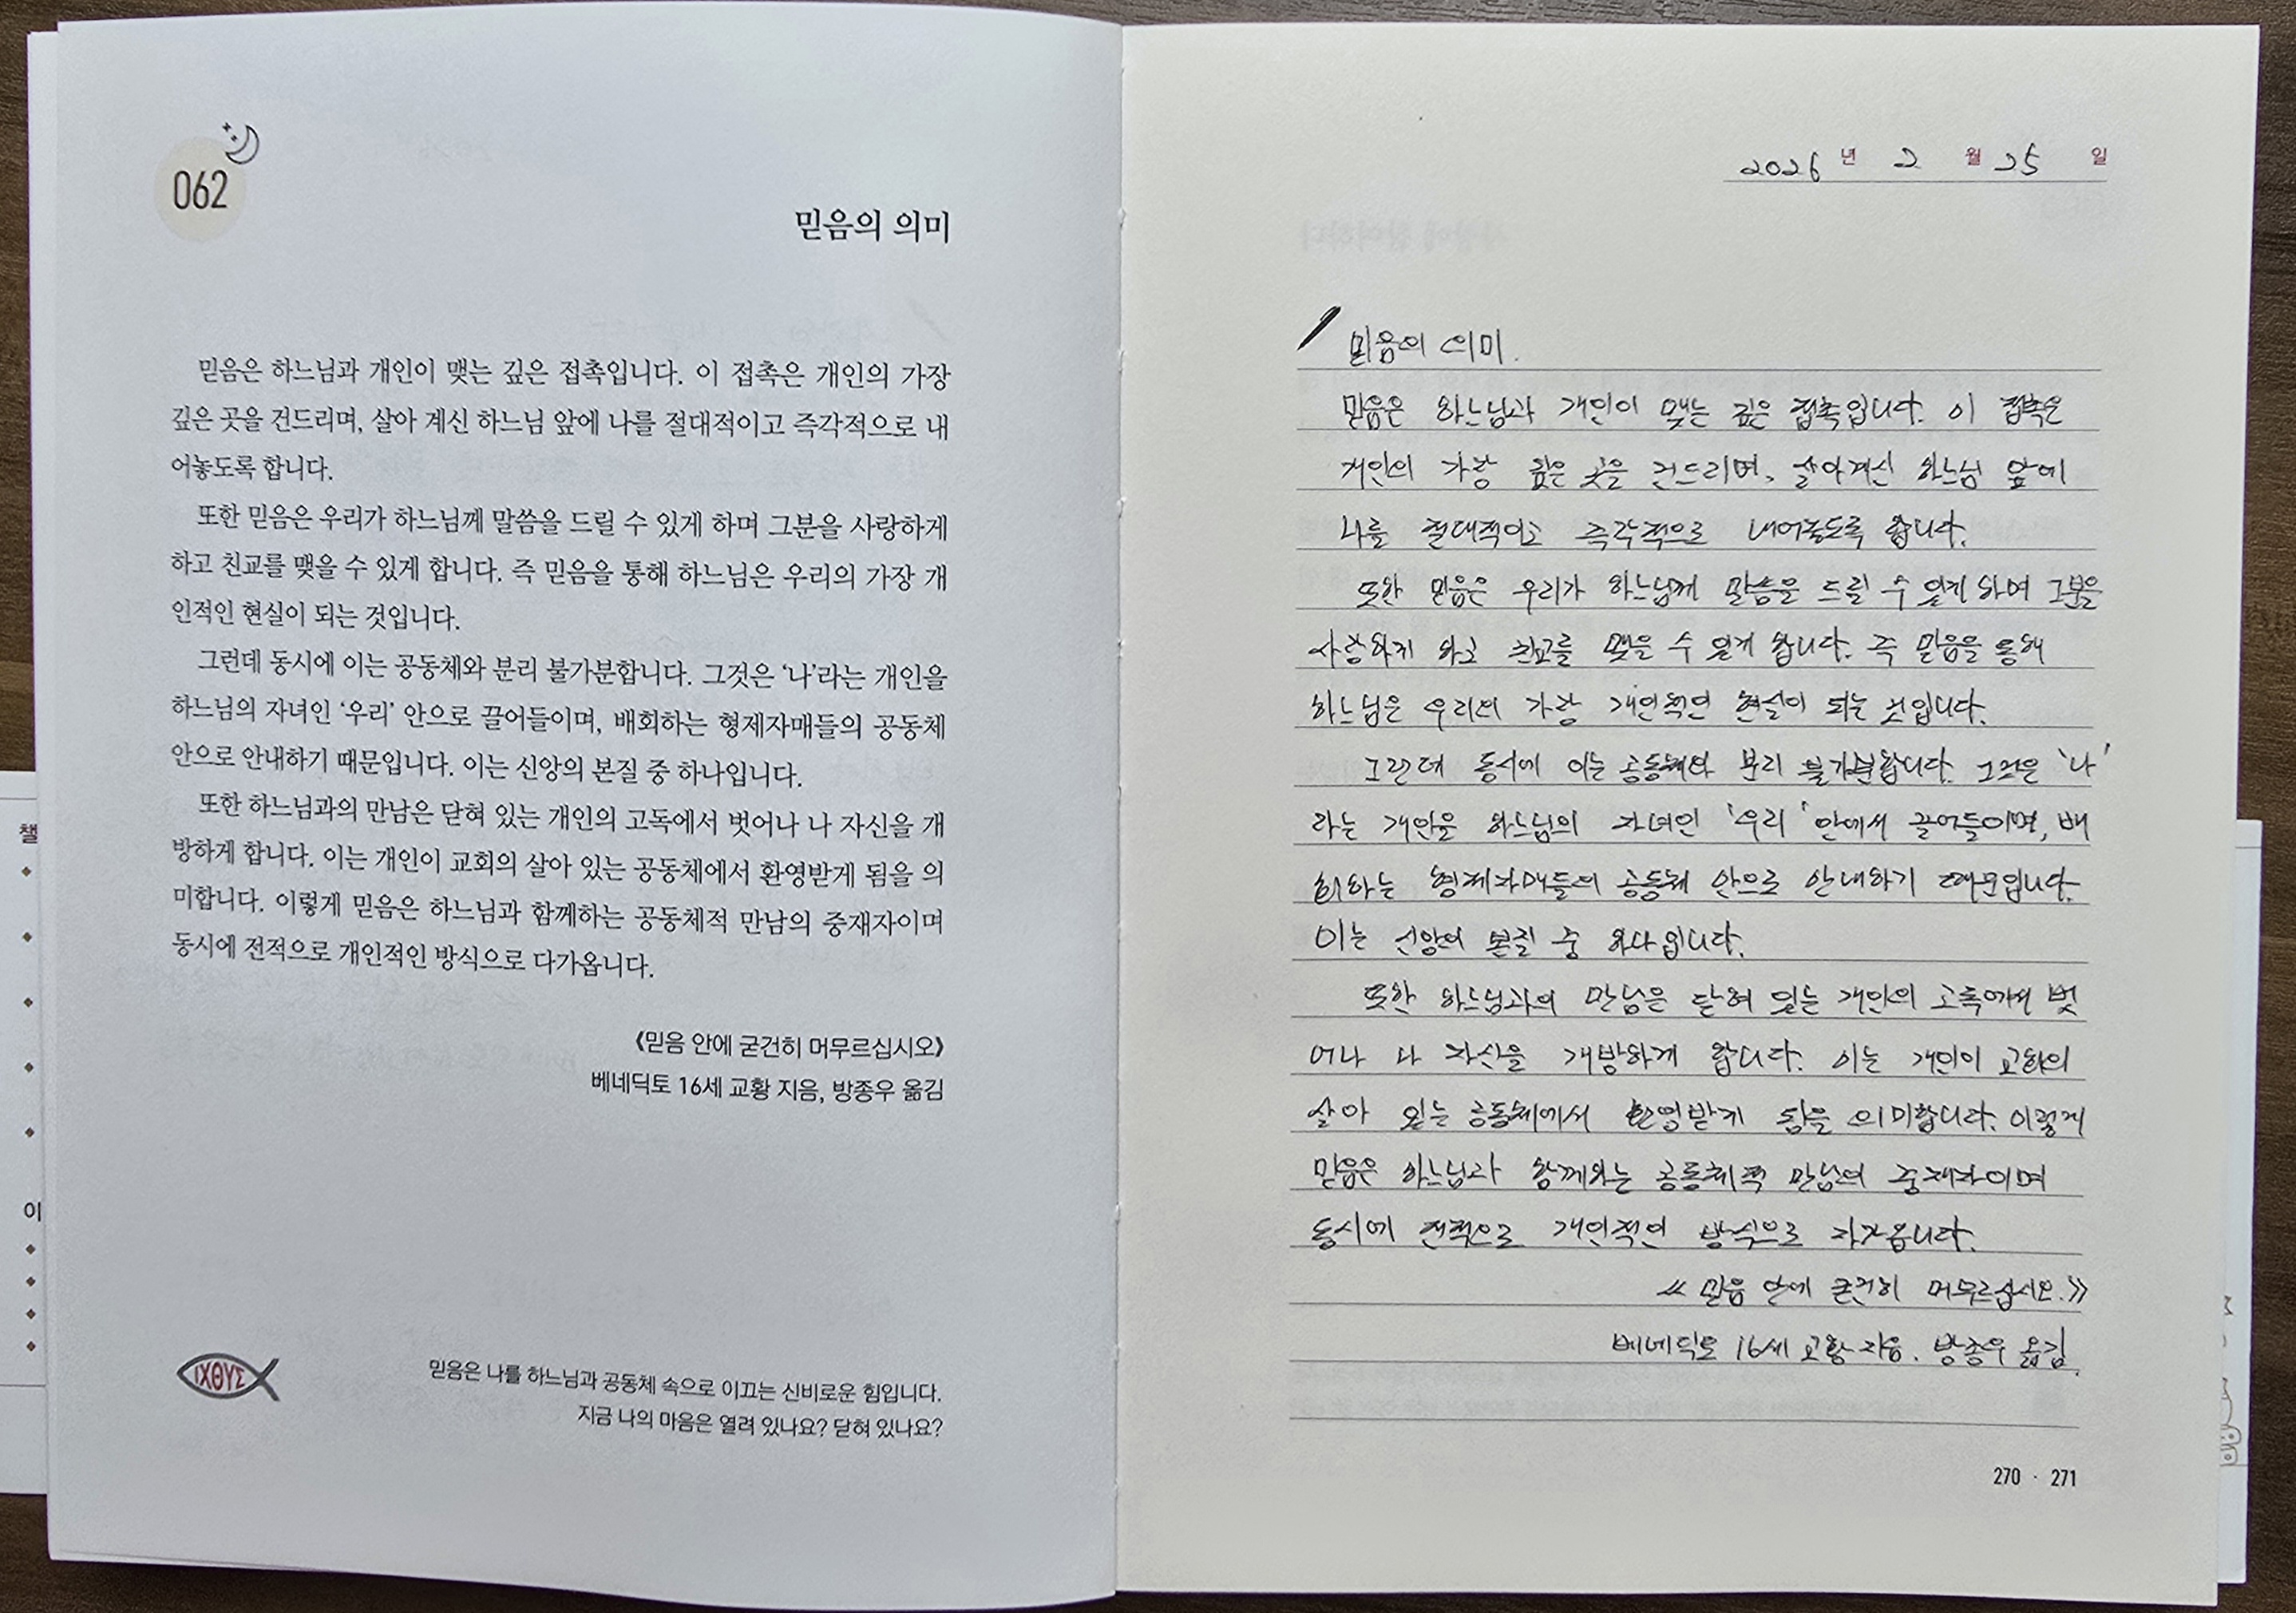 062
믿음의 의미
믿음은 하느님과 개인이 맺는 깊은 접촉입니다. 이 접촉은 개인의 가장
깊은 곳을 건드리며, 살아 계신 하느님 앞에 나를 절대적이고 즉각적으로 내
어놓도록 합니다.
또한 믿음은 우리가 하느님께 말씀을 드릴 수 있게 하며 그분을 사랑하게
하고 친교를 맺을 수 있게 합니다. 즉 믿음을 통해 하느님은 우리의 가장 개
인적인 현실이 되는 것입니다.
그런데 동시에 이는 공동체와 분리 불가분합니다. 그것은 ‘나’라는 개인을
하느님의 자녀인 ‘우리’ 안으로 끌어들이며, 배회하는 형제자매들의 공동체
안으로 안내하기 때문입니다. 이는 신앙의 본질 중 하나입니다.
또한 하느님과의 만남은 닫혀 있는 개인의 고독에서 벗어나 나 자신을 개
방하게 합니다. 이는 개인이 교회의 살아 있는 공동체에서 환영받게 됨을 의
미합니다. 이렇게 믿음은 하느님과 함께하는 공동체적 만남의 중재자이며
동시에 전적으로 개인적인 방식으로 다가옵니다.
《믿음 안에 굳건히 머무르십시오》
베네딕토 16세 교황 지음, 방종우 옮김
ΙΧΘΥΣ
믿음은 나를 하느님과 공동체 속으로 이끄는 신비로운 힘입니다.
지금 나의 마음은 열려 있나요? 닫혀 있나요?
챌
이
2026 년 2 월 25 일
믿음의 의미.
믿음은 하느님과 개인이 맺는 깊은 접촉입니다. 이 접촉은
개인의 가장 깊은 곳을 건드리며, 살아계신 하느님 앞에
나를 절대적이고 즉각적으로 내어놓도록 합니다.
또한 믿음은 우리가 하느님께 말씀을 드릴 수 있게 하며 그분을
사랑하게 하고 친교를 맺을 수 있게 합니다. 즉 믿음을 통해
하느님은 우리의 가장 개인적인 현실이 되는 것입니다.
그런데 동시에 이는 공동체와 분리 불가분합니다. 그것은 ‘나’
라는 개인을 하느님의 자녀인 ‘우리‘ 안에서 끌어들이며, 배
회하는 형제자매들의 공동체 안으로 안내하기 때문입니다.
이는 신앙의 본질 중 하나입니다.
또한 하느님과의 만남은 닫혀 있는 개인의 고독에서 벗
어나 나 자신을 개방하게 합니다. 이는 개인이 교회의
살아 있는 공동체에서 환영받게 됨을 의미합니다. 이렇게
믿음은 하느님과 함께하는 공동체적 만남의 중재자이며
동시에 전적으로 개인적인 방식으로 다가옵니다.
《믿음 안에 굳건히 머무르십시오.》
베네딕토 16세 교황 지음. 방종우 옮김.
270 · 271